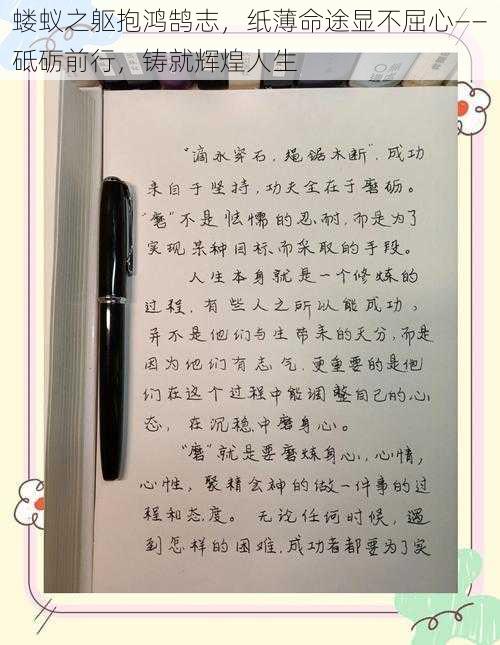 蝼蚁之躯抱鸿鹄志，纸薄命途显不屈心——
砥砺前行，铸就辉煌人生
“滴水穿石，绳锯木断”，成功
来自于坚持，功夫全在于磨砺。
“磨”不是怯懦的忍耐，而是为了
实现某种目标而采取的手段。
人生本身就是一个修炼的
过程，有些人之所以能成功，
并不是他们与生带来的天分，而是
因为他们有志气，更重要的是他
们在这个过程中能调整自己的心
态，在沉稳中磨身心。
“磨”就是要磨炼身心，心情，
心性，聚精会神的做一件事的过
程和态度。无论任何时候，遇
到怎样的困难，成功者都要为了实